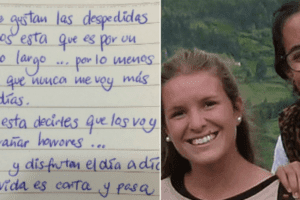 o gustan las despedidas
os esta que es por un
o largo ... por lo menos
que nunca me voy más
días.
esta decirles que los voy
añar horrores ...
y disfrutan el día a día
vida es corta y pasa